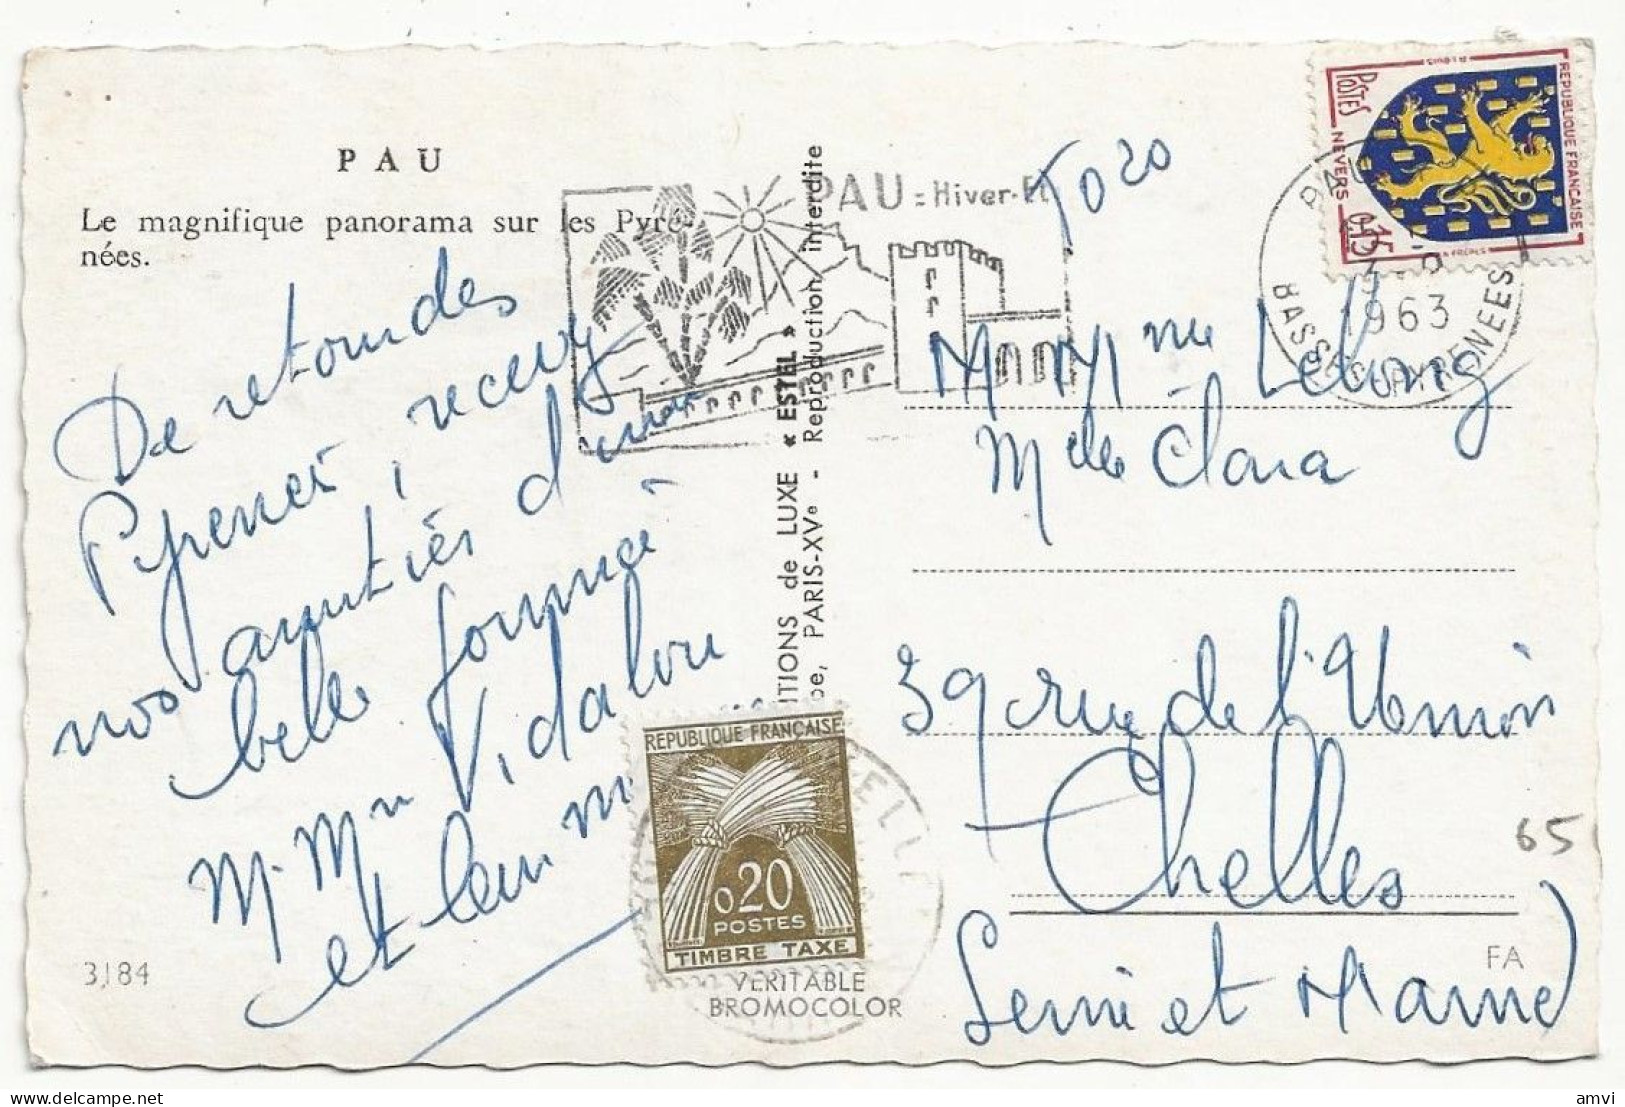 PAU
Le magnifique panorama sur les Pyré-
nées.
De retour des
Pyrenées, recevez
nos amitiés d'une
belle journée
M. Mme Vidalou
et leur
3184
PAU = Hiver-Et
ÉDITIONS de LUXE « ESTEL »
PARIS-XVe - Reproduction interdite
T 0 20
REPUBLIQUE FRANÇAISE
POSTES
NEVERS
0,15
PAU
1963
BASSES PYRENEES
M Mme Lelong
Mlle Clara
39 rue de l'Union
Chelles
(Seine et Marne)
65
FA
REPUBLIQUE FRANÇAISE
0,20
POSTES
TIMBRE TAXE
CHELLES
VÉRITABLE
BROMOCOLOR
amvi